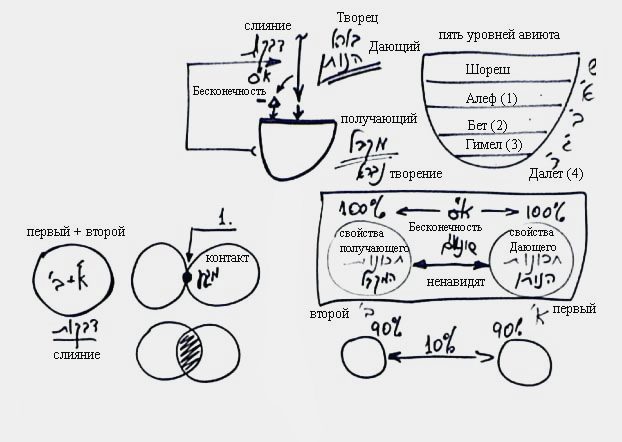 слияние
דבקות
א"ס
Бесконечность
Творец
בורא
Дающий
הנותן
получающий
מקבל
творение
נברא
пять уровней авиюта
Шореш
Алеф (1)
Бет (2)
Гимел (3)
Далет (4)
ש
א'
ב'
ג'
ד'
первый + второй
א'+ב'
דבקות
слияние
1.
контакт
מגע
100% א"ס 100%
Бесконечность
свойства
получающего
תכונות
המקבל
שונאים
ненавидят
свойства
Дающего
תכונות
הנותן
второй ב'
א' первый
90% 10% 90%